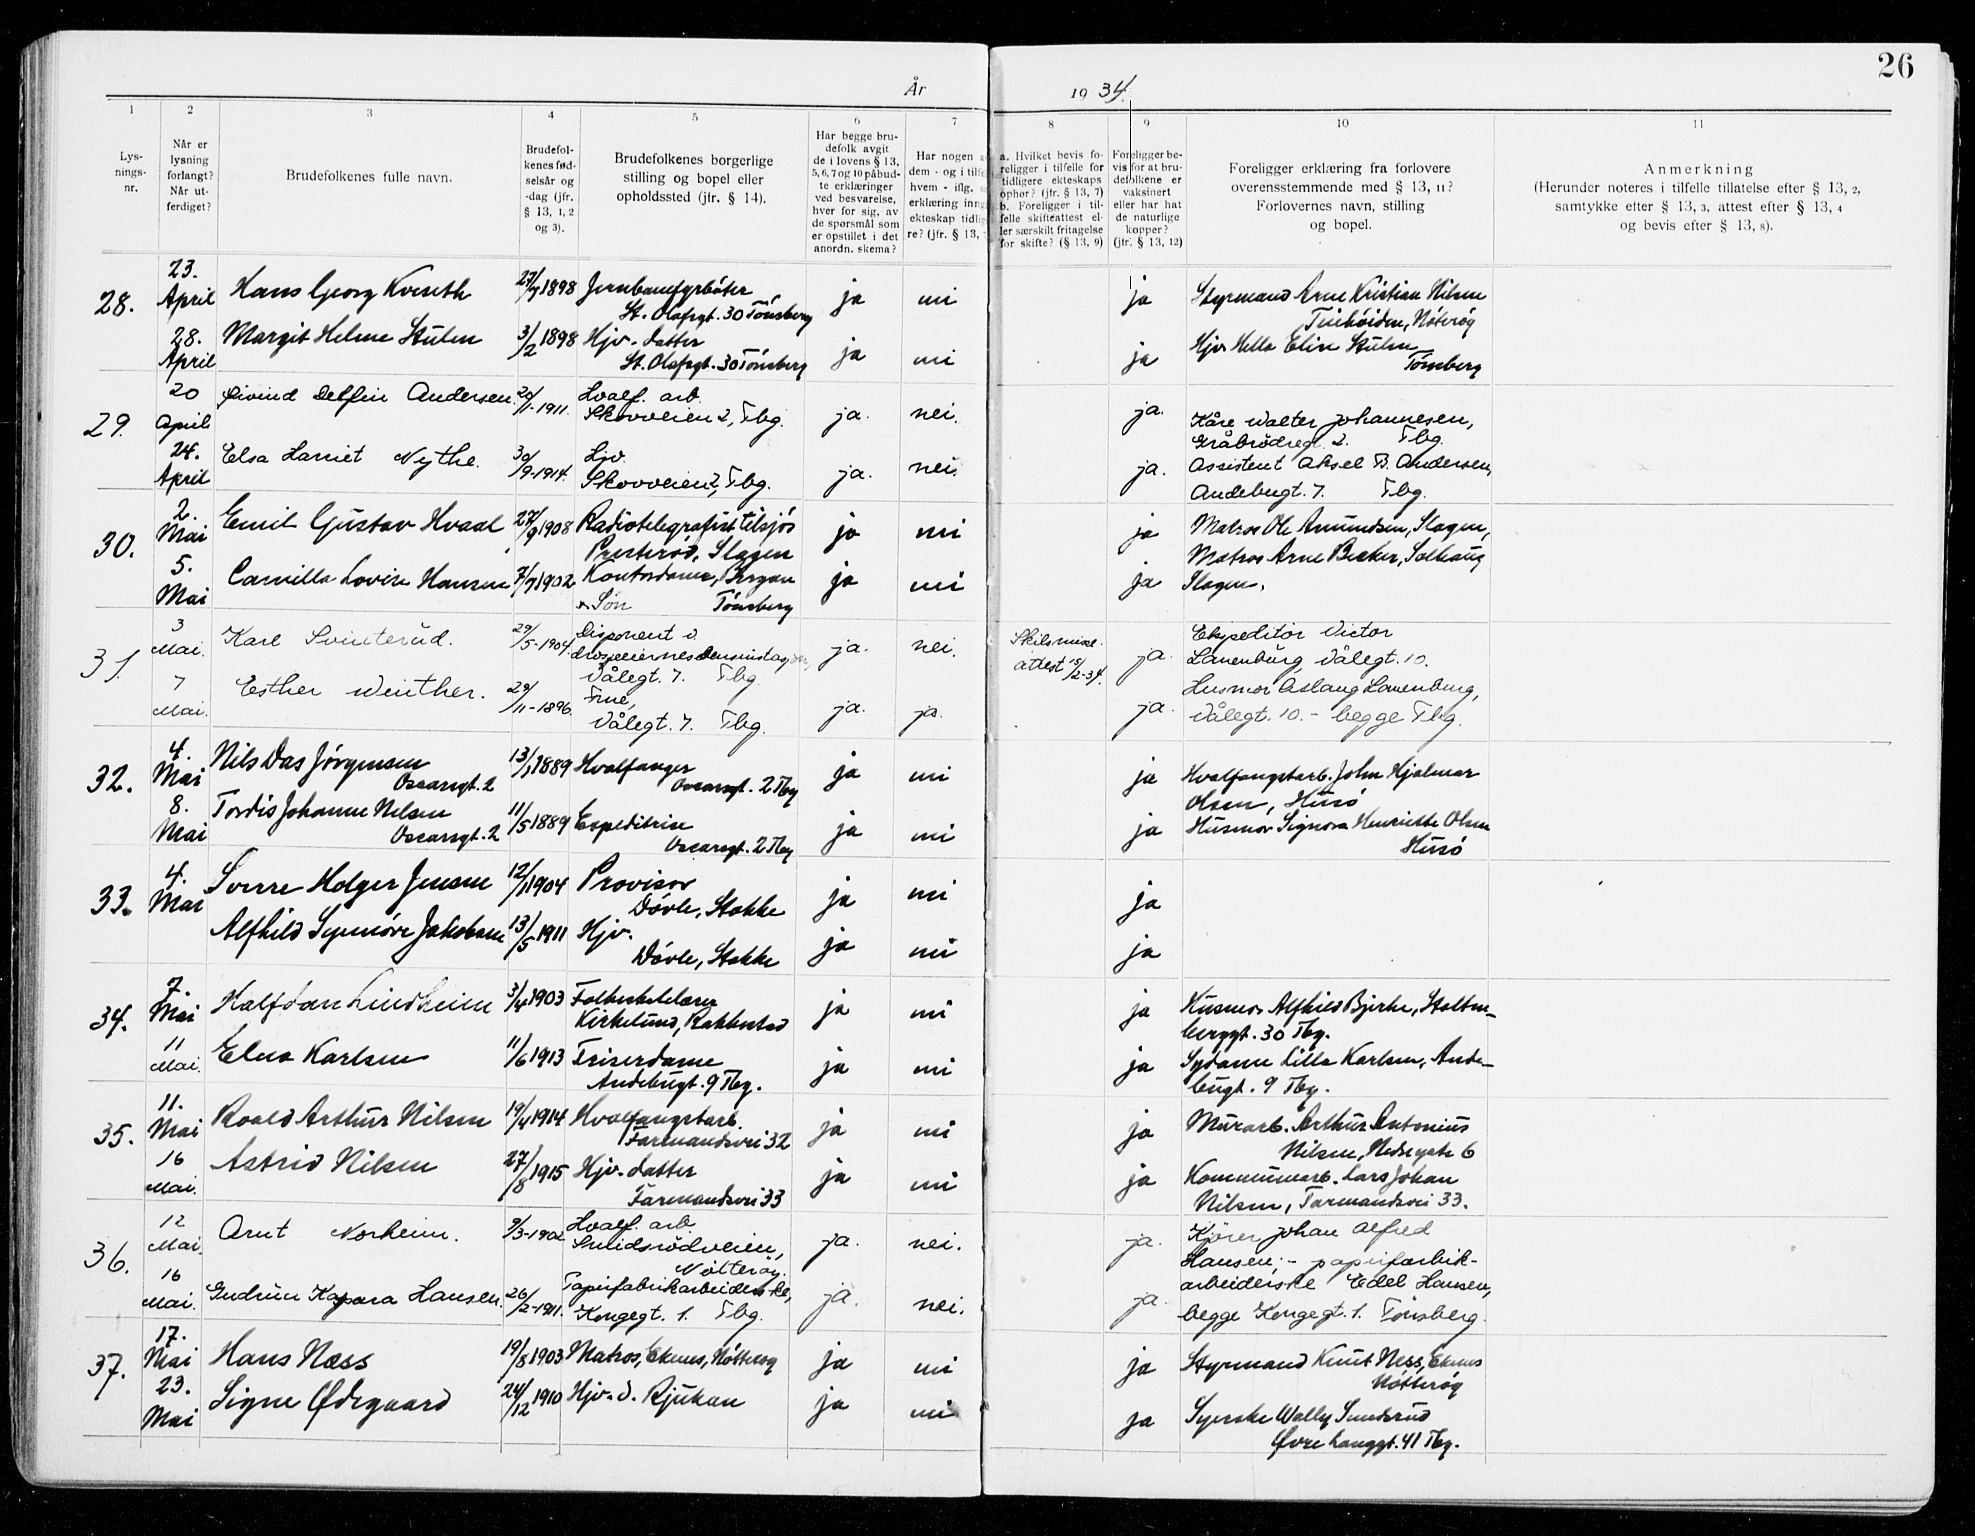 26
År
19 34.
1
2
3
4
5
6
7
8
9
10
11
Lys-
nings-
nr.
Når er
lysning
forlangt?
Når ut-
ferdiget?
Brudefolkenes fulle navn.
Brudefol-
kenes fød-
selsår og
-dag (jfr.
§ 13, 1, 2
og 3).
Brudefolkenes borgerlige
stilling og bopel eller
opholdssted (jfr. § 14).
Har begge bru-
defolk avgit
de i lovens § 13,
5, 6, 7 og 10 påbud-
te erklæringer
ved besvarelse,
hver for sig, av
de spørsmål som
er opstillet i det
anordn. skema?
Har nogen a
dem - og i tilfe
hvem - iflg.
erklæring inng
ekteskap tidlig
re? (jfr. § 13,
a. Hvilket bevis fo-
religger i tilfelle for
tidligere ekteskaps
ophør? (jfr. § 13, 7)
b. Foreligger i til-
felle skifteattest el-
ler særskilt fritagelse
for skifte? (§ 13, 9)
Foreligger be-
vis for at bru-
defolkene er
vaksinert
eller har hat
de naturlige
kopper?
(jfr. § 13, 12)
Foreligger erklæring fra forlovere
overensstemmende med § 13, 11?
Forlovernes navn, stilling
og bopel.
Anmerkning
(Herunder noteres i tilfelle tillatelse efter § 13, 2,
samtykke efter § 13, 3, attest efter § 13, 4
og bevis efter § 13, 8).
28.
23.
April
Hans Georg Kverneth
27/7 1898
Jernbanefyrbøter
St. Olafsgt. 30 Tönsberg
ja
nei
ja
Styrmand Arne Kristian Nilsen
Nöteröy
28.
April
Margit Helene Stulen
3/2 1898
Hjv. datter
St. Olafsgt. 30 Tönsberg
ja
nei
ja
Hjv. Hella Elise Stulen
Tönsberg
29.
20
April
Øivind Delfin Andersen
20/1-1911.
Hvalf. arb.
Skovveien 2, Tbg.
ja.
nei.
ja.
Kåre Walter Johannesen,
Gråbrödregt. 2. Tbg.
24.
April
Elsa Harriet Nythe.
30/9-1914.
Hjv.
Skovveien 2, Tbg.
ja.
nei.
ja.
Assistent Aksel B. Andersen,
Andebugt. 7. Tbg.
30.
2.
Mai
Emil Gustav Hvaal
27/9 1908
Radiotelegrafist tilsjös
Presteröd, Slagen
ja
nei
ja
Matros Ole Amundsen, Slagen,
Matros Arne Becker, Solhaug
5.
Mai
Camilla Lovise Hansen
7/7 1902
Kontordame, Bergan
& Sön Tönsberg
ja
nei
ja
Slagen.
31.
3
Mai.
Karl Svinterud.
29/5-1904.
Disponent v.
Vålegt. 7. Tbg.
ja.
nei.
Skilsmisse.
attest 15/2-34.
ja.
Ekspeditör Victor
Lauenburg, Vålegt. 10.
7
Mai.
Esther Winther.
29/11-1896.
Frue,
Vålegt. 7. Tbg.
ja.
ja.
ja.
Husmor Aslaug Lauenburg,
Vålegt. 10. - begge Tbg.
32.
4.
Mai
Nils Das Jörgensen
Oscarsgt. 2
13/1 1889
Hvalfanger
Oscarsgt. 2 Tbg
ja
nei
ja
Hvalfangstarb. John Hjalmar
Olsen, Husö
8.
Mai
Tordis Johanne Nilsen
Oscarsgt. 2
11/5 1889
Expeditrise
Oscarsgt. 2 Tbg
ja
nei
ja
Husmor Signora Henriette Olsen
Husö
33.
4.
Mai
Sverre Holger Jensen
12/1 1904
Provisor
Dövle, Stokke
ja
nei
ja
Alfhild Synnöve Jakobsen
13/5 1911
Hjv.
Dövle, Stokke
ja
nei
ja
34.
7.
Mai
Halfdan Lindheim
3/4 1903
Folkeskolelærer
Kirkelund, Rakkestad
ja
nei
ja
Husmor Alfhild Bjerke, Stolten-
berggt. 30 Tbg.
11
Mai.
Elna Karlsen
11/6 1913
Friserdame
Andebugt. 9 Tbg.
ja
nei
ja
Sydame Lilla Karlsen, Ande-
bugt. 9 Tbg.
35.
11.
Mai
Roald Arthur Nilsen
19/4 1914
Hvalfangstarb.
Farmandsvei 32
ja
nei
ja
Murarb. Arthur Antonius
Nilsen, Nedregate 6
16
Mai.
Astrid Nilsen
27/8 1915
Hjv. datter
Farmandsvei 33
ja
nei
ja
Kommunearb. Lars Johan
Nilsen, Farmandsvei 33.
36.
12
Mai.
Arnt Norheim.
9/3-1902
Hvalf. arb.
Smidsrödveien,
Nötteröy.
ja.
nei.
ja.
Kjörer Johan Alfred
Hansen; - papirfabrik-
16
Mai.
Gudrun Kaspara Hansen.
26/2-1911.
Papirfabrikarbeiderske,
Kongegt. 1. Tbg.
ja.
nei.
ja.
arbeiderske Edel Hansen,
begge Kongegt. 1. Tönsberg.
37.
17.
Mai
Hans Næss
19/8 1903
Matros, Ekenes, Nötteröy
ja
nei
ja
Styrmand Knut Ness, Ekenes
Nötteröy
23.
Mai
Signe Ødegaard
24/12 1910
Hjv. d. Rjukan
ja
nei
ja
Syerske Wally Sundsrud
Øvre Langgt. 41 Tbg.